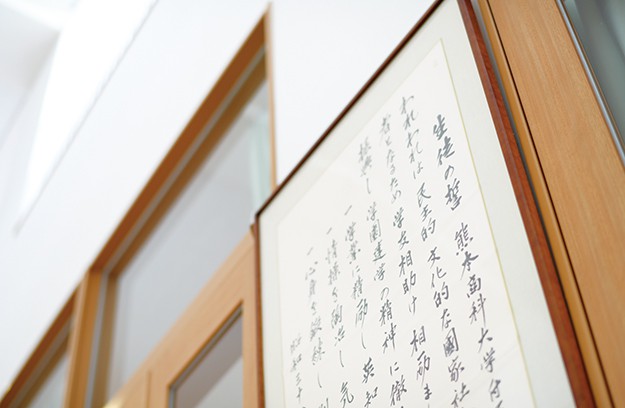 生徒の誓 熊本商科大学付
われわれは民主的文化的な國家社
者となるため学友相助け相励ま
振興し学園建学の精神に徹
一 学業に精励し英知
一 情操を陶冶し気
一 心身を鍛練し
昭和三十